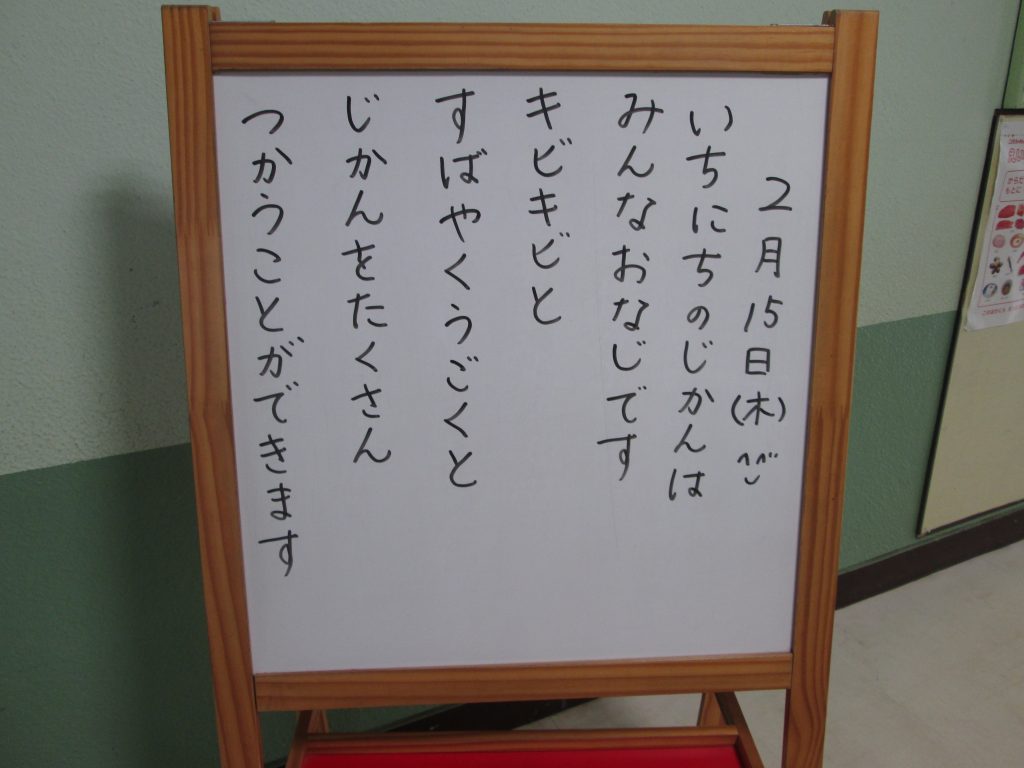 2月15日(木)
いちにちのじかんは
みんなおなじです
キビキビと
すばやくうごくと
じかんをたくさん
つかうことができます